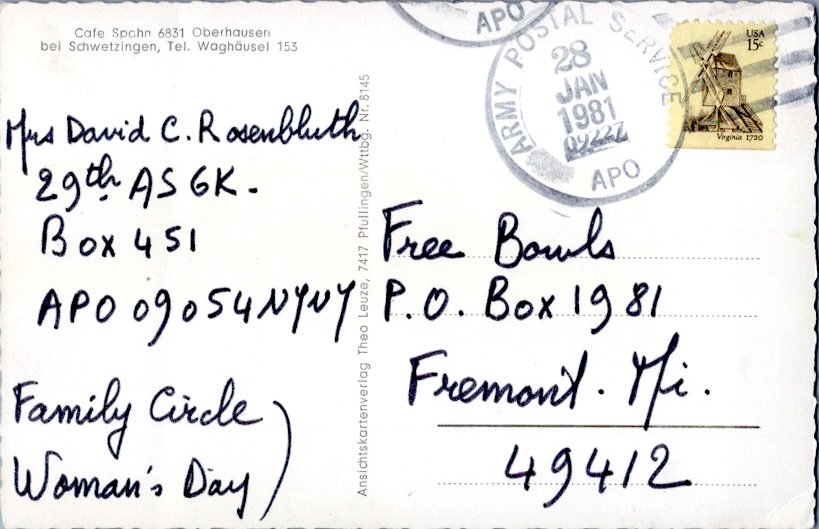 Cafe Spohn 6831 Oberhausen
bei Schwetzingen, Tel. Waghäusel 153
Mrs David C. Rosenbluth
29th ASGK.
Box 451
APO 09054 NYNY
Family Circle
Woman's Day
Ansichtskartenverlag Theo Leuze, 7417 Pfullingen/Wttbg. Nr. 8145
APO
ARMY POSTAL SERVICE
28
JAN
1981
APO
USA
15c
Virginia 1720
Free Bowls
P.O. Box 1981
Fremont. Mi.
49412